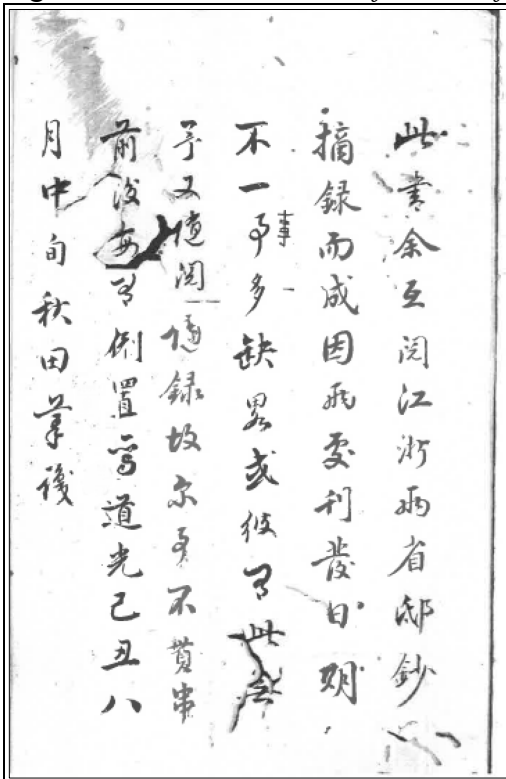 此書余互閱江浙兩省邸鈔
摘録而成因兩處刊發日期
不一事多缺畧或彼有此無
事
予又隨閱隨録故尔有不貫串
前後每有倒置焉道光己丑八
月中旬秋田筆識